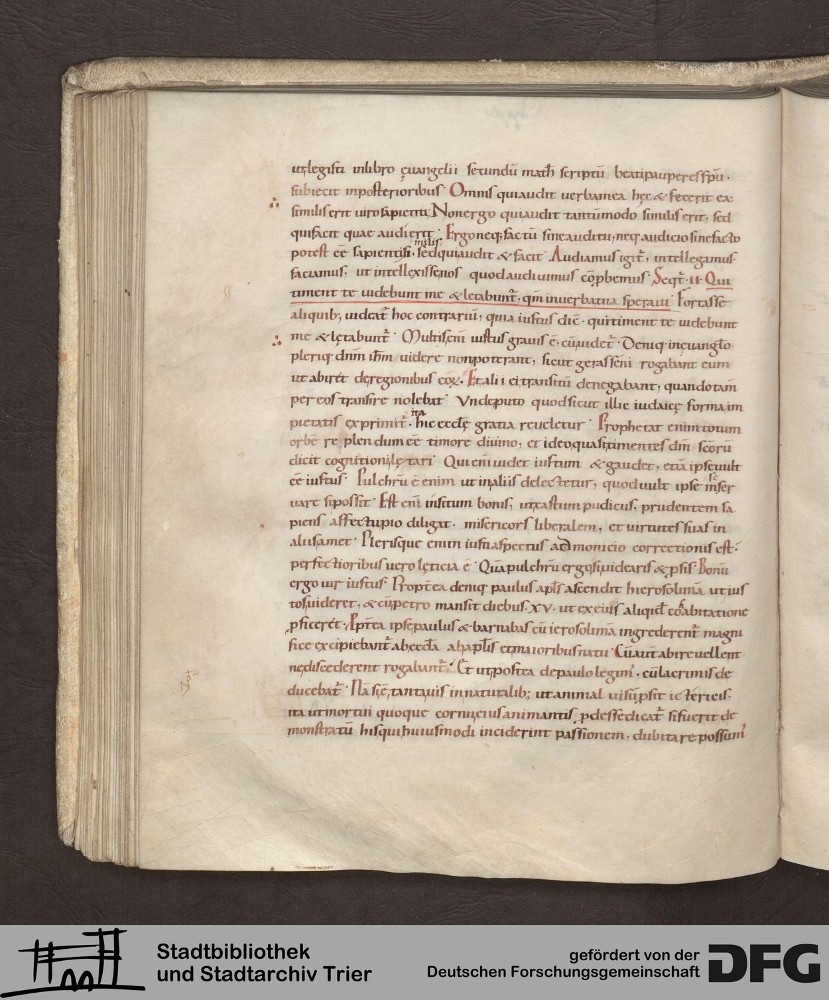 ut legisti in libro ęuangelii secundū math̄ scriptū beati pauperes sp̄u·
subiecit in posterioribus Omnis qui audit uerba mea hęc & fecerit ea·
similis erit uiro sapienti; Non ergo qui audit tantūmodo similis erit· sed
qui facit quae audierit· Ergo neq; factū sine auditu, neq; audicio sine facto
potest eē sapientis·
similis
sed qui audit & facit· Audiamus igit̄, intellegamus
faciamus; ut intellexisse nos quod audiuimus cōp̄bemus· Seqt̄· II· Qui
timent te uidebunt me & lętabunt̄, qm̄ in uerba tua speraui· Fortasse
aliquib; uideat̄ hoc contrariū, quia iustus dic̄· qui timent te uidebunt
me & lętabunt̄· Multis eni iustus grauis ē, cū uidet̄· Deniq; in ęuanglo
pleriq; dnm̄ ihm̄ uidere non poterant, sicut gerasseni rogabant eum
ut abiret de regionibus eoꝝ· Et alii ei transitū denegabant, quando tam̄
per eos transire nolebat· Vnde puto quod sicut illic iudaicę forma im
pietatis exprimit̄·
ita
hic ecclę gratia reueletur· Prophetat enim totum
orbē replendum eē timore diuino, et ideo quasi timentes dm̄ sc̄orū
dicit cognitioni lętari· Qui eni uidet iustum & gaudet, etiā ipse uult
eē iustus· Pulchrū ē enim ut in aliis delectetur, quod uult ipse
se
in ser
uare si possit· Est eni insitum bonis, ut castum pudicus, prudentem sa
piens affectu pio diligat· misericors liberalem, et uirtutes suas in
aliis amet· Plerisque enim iusti aspectus admonicio correctionis est·
perfectioribus uero lęticia ē· Quā pulchrū ergo si uidearis & p̄sis· Bonū
ergo uir iustus· Propt̄ea deniq; paulus apl̄s ascendit hierosolima ut ius
tos uideret, & cū petro mansit diebus· XV· ut ex eius aliqid cohabitatione
ꝓficeret· Ppt̄ea ipse paulus & barnabas cū ierosolima ingrederent̄ magni
fice excipiebant̄ ab eccl̄a ab ap̄lis et maioribus natu· Cū aut̄ abire uellent
ne discederent rogabant̄· Et ut postea de paulo legim', cū lacrimis de
ducebat̄· Nā si ē tanta uis in naturalib; ut animal uisū ꝓsit ictericis·
ita ut mortui quoque cornu eius animantis, ꝓdesse dicat̄ si fuerit de
monstratū his qui huiusmodi inciderint passionem, dubitare possum'
Stadtbibliothek
und Stadtarchiv Trier
gefördert von der
Deutschen Forschungsgemeinschaft
DFG